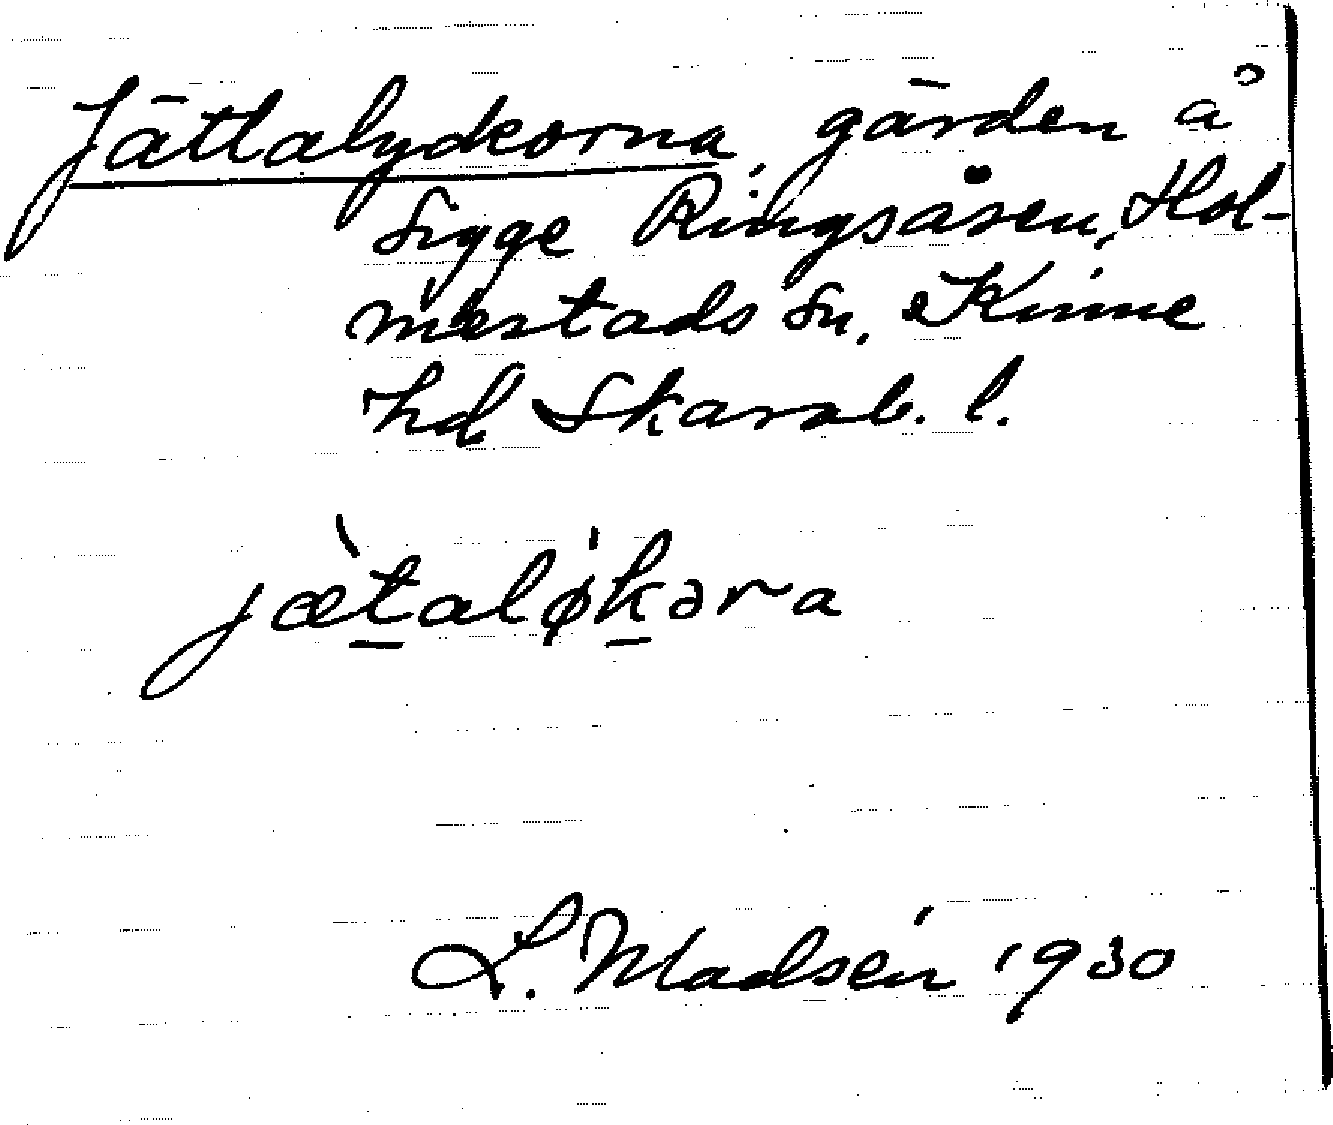 Jättalyckorna; gården å
Sigge Ringsåsen, Hol-
mestads sn. Kinne
hd Skarab. l.
jæ̀talø̍kəra
L. Madsén 1930